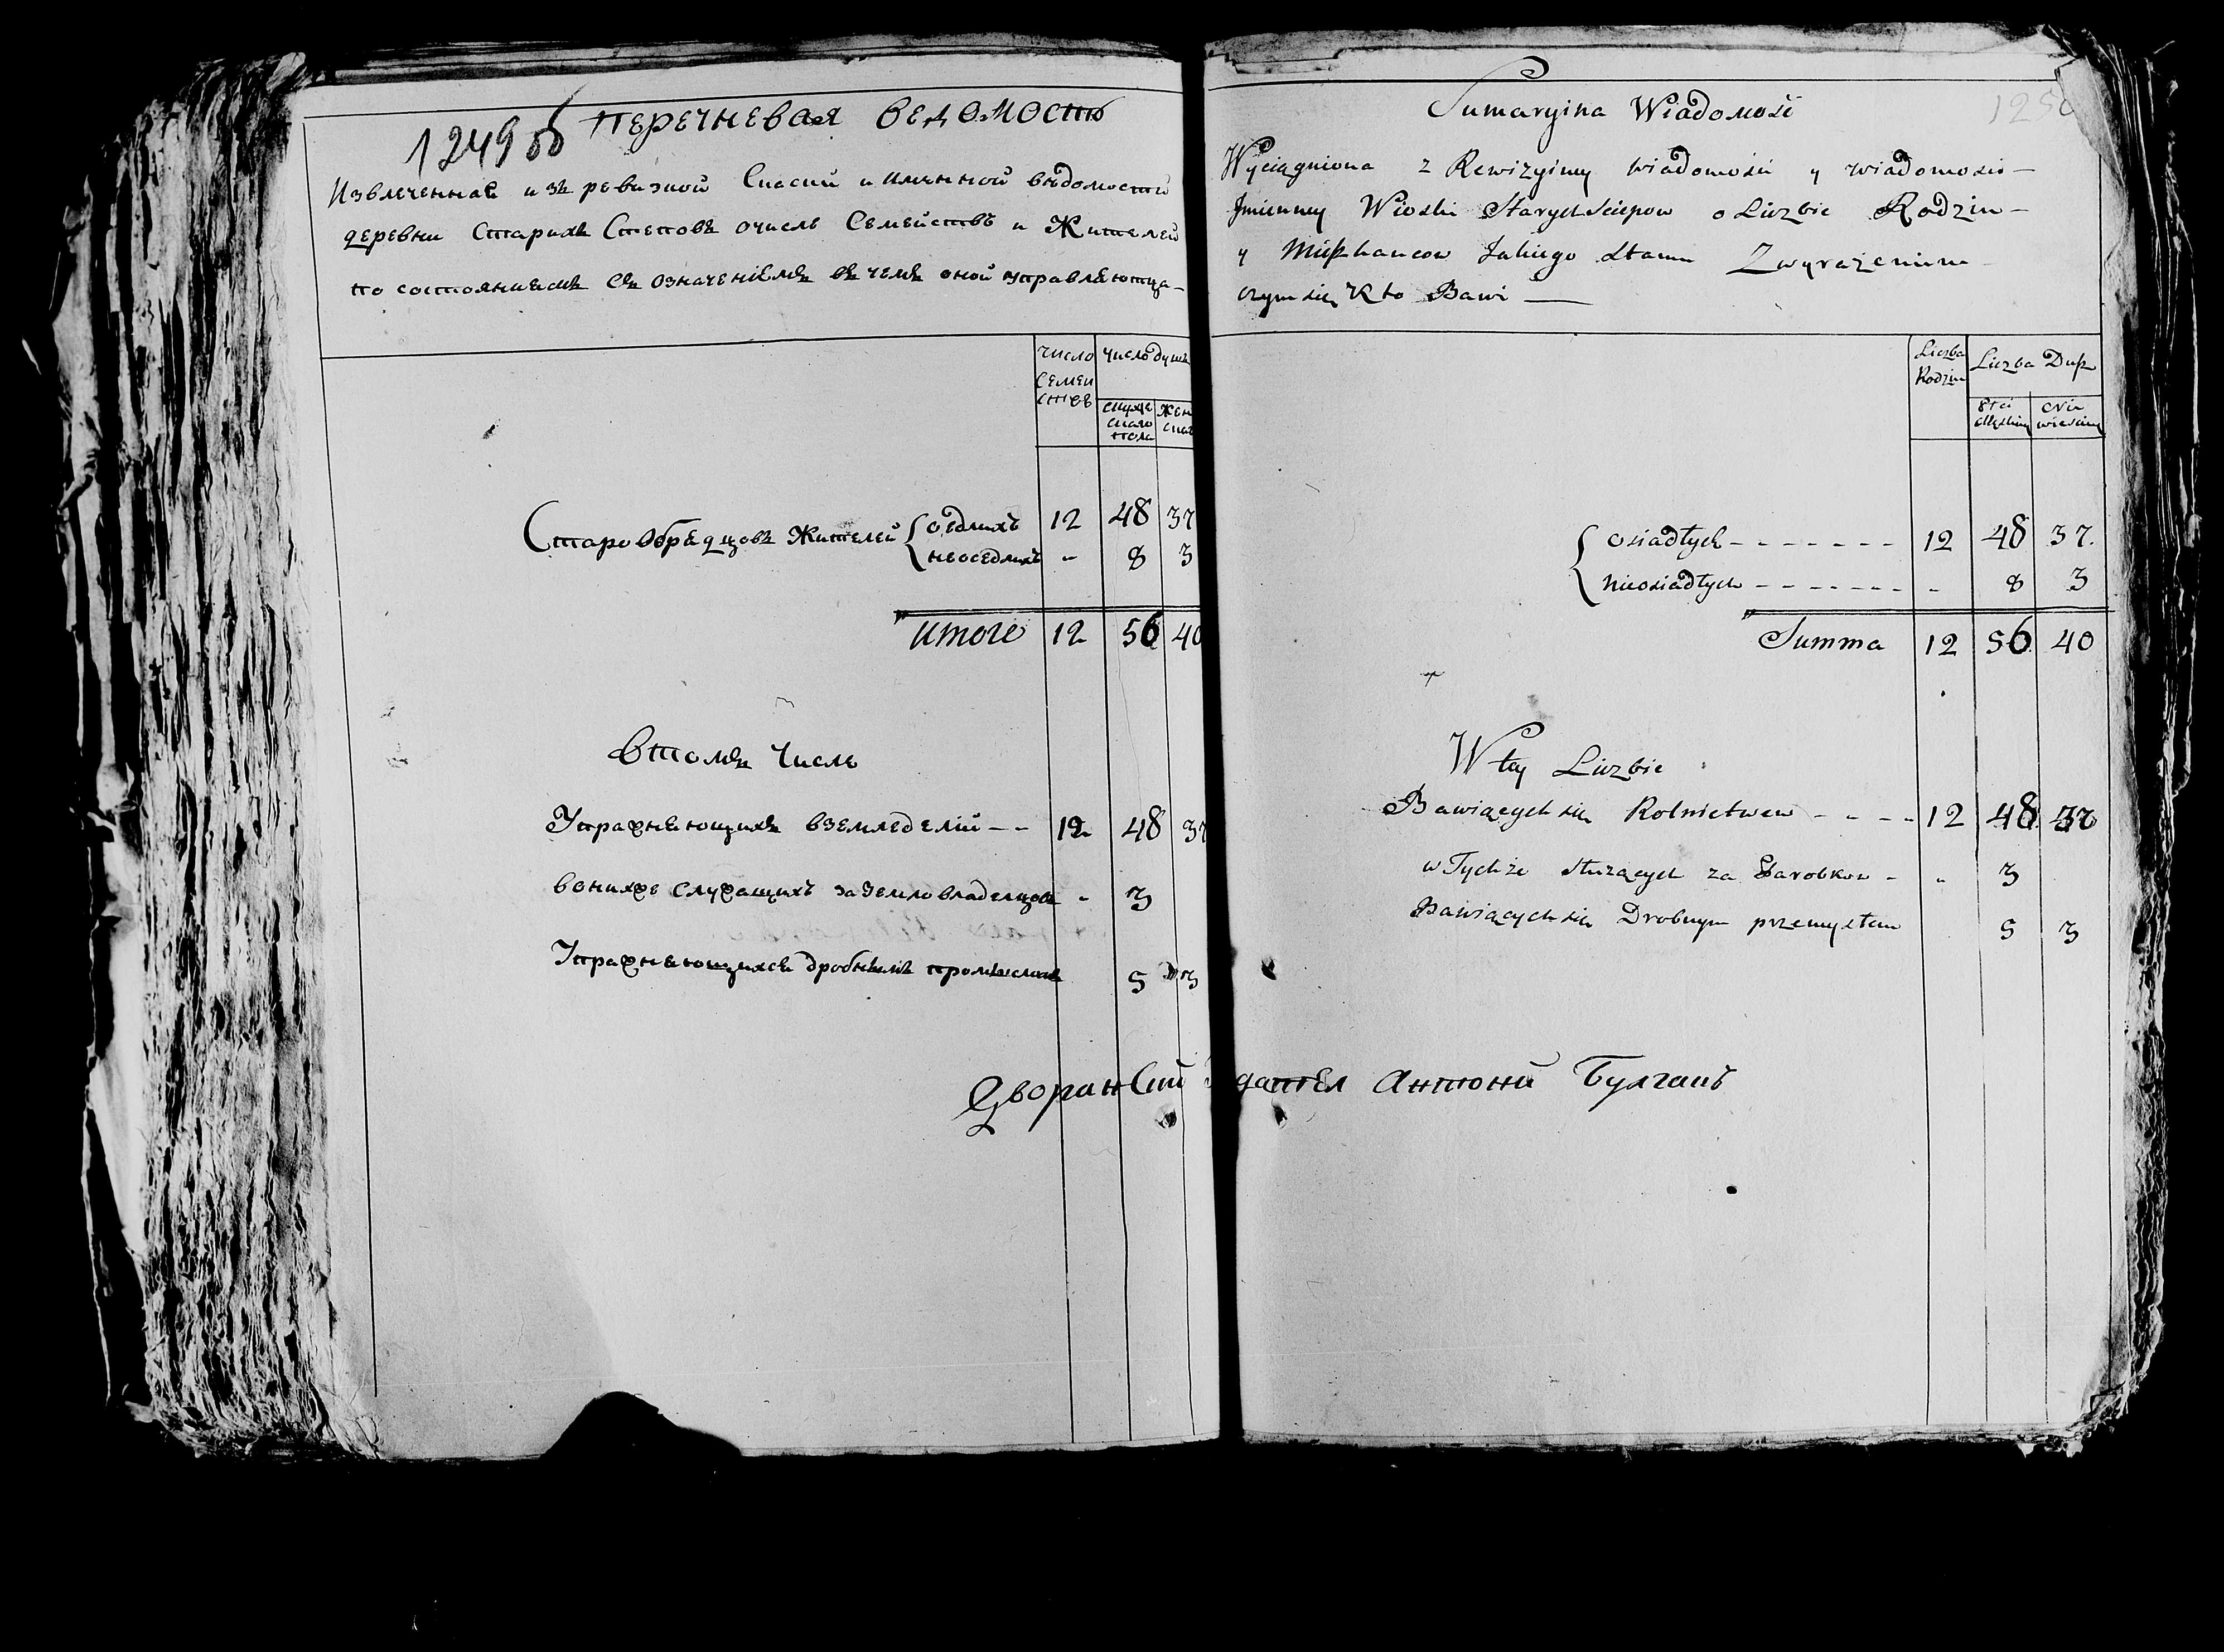 1249 об
ПЕРЕЧНЕВАЯ ВЕДОМОСТЬ
Извлеченная изъ ревизкой Скаски и имянной вѣдомости
деревни Старихъ Степовъ очисле Семействъ и Жителей
по состояниямъ съ означениемъ въ чемъ оной управляютца
число семействъ
число душъ
мужескаго пола
жен
Старообрядцовъ Жителей
оседлихъ 12 48 37
неоседлихъ - 8 3
итого 12 56 40
Втомъ числе
Упражняющихъ вземледелии -- 12 48 37
вонихже служащихъ заземловладелцовъ - 3
Упражняющихся дробнимъ промысломъ 5 3
Дворанский здател Антони Булгакъ
1250
Sumaryina Wiadomość
Wyciągniona z Rewizyiney wiadomosci y wiadomosci
Jmienney Wioski Starych Sciepow o Liczbie Rodzin
y Mieszkancow Jakiego stanu Z wyrazeniem
czym się Kto Bawi
Liczba Rodzin
Liczba Dusz
Płci Męskiey
Niewiesciey
Osiadłych - - - - - - - 12 48 37.
Nieosiadłych - - - - - - - - 8 3
Summa 12 56 40
W tey Liczbie
Bawiących się Rolnictwem - - - - 12 48 37
w Tychże służących za Parobkow - - 3
Bawiących się Drobnym przemysłem 5 3